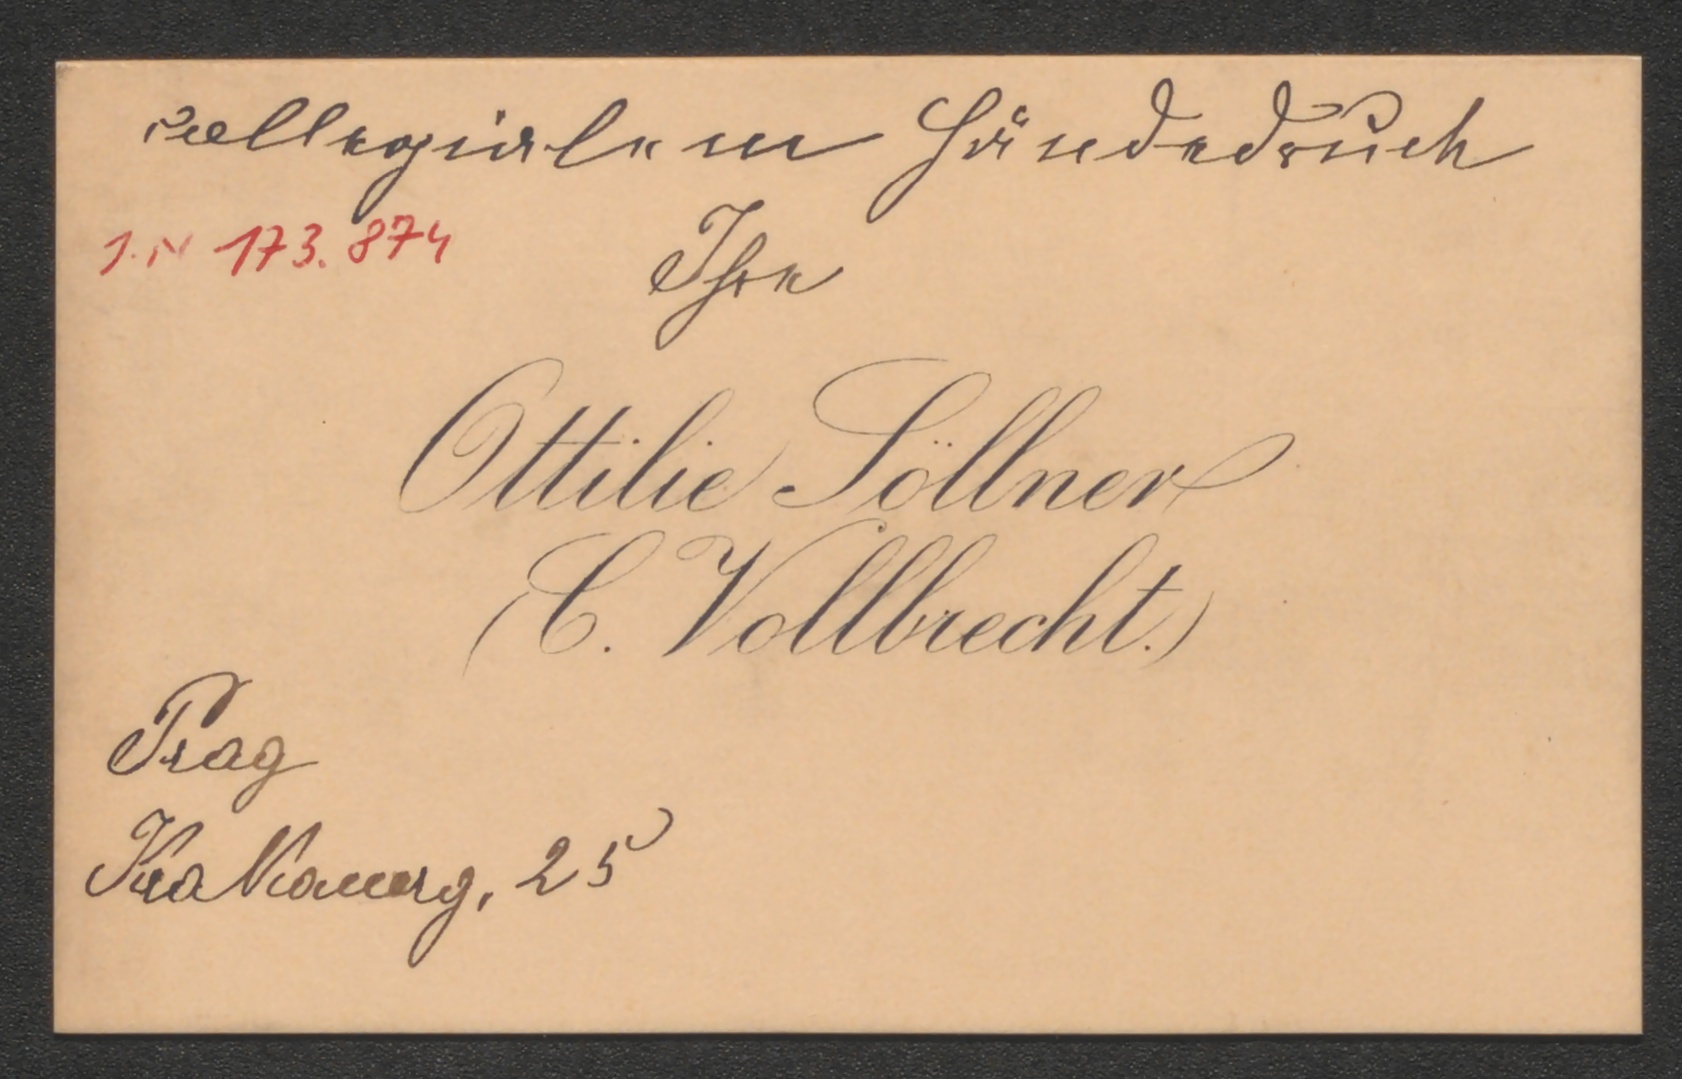 collegialem Händedruck
I.N 173.874
Ihre
Ottilie Söllner
(C. Vollbrecht.)
Prag
Krakauerg. 25